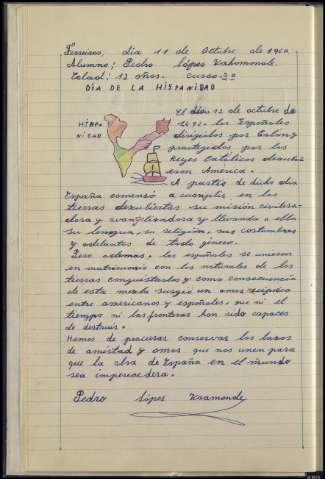 Ferreiros, día 11 de Octubre de 196
Alumno; Pedro López Vahamonde.
Edad: 12 años. Curso 3º
DÍA DE LA HISPANIDAD
HISPA-
NIDAD
El día 12 de octubre de
1492. los Españoles
dirigidos por Colon y
protegidos por los
Reyes Católicos descubri
eron America.
A partir de dicho día
España comensó a cumplir en las
tierras descubiertas su misión civiliza-
dora y evangelizadora y llevando a ella
su lengua, su religión, sus costumbres
y adelantos de todo género.
Pero ademas, los españoles se unieron
en matrimonio con los naturales de las
tierras conquistadas y como consecuencia
de esta mezcla surgió un amor recíproco
entre americanos y españoles, que ni el
tiempo ni las fronteras han sido capaces
de destruir.
Hemos de procurar conservar los lazos
de amistad y amor que nos unen para
que la obra de España en el mundo
sea imperecedera.
Pedro López Vaamonde